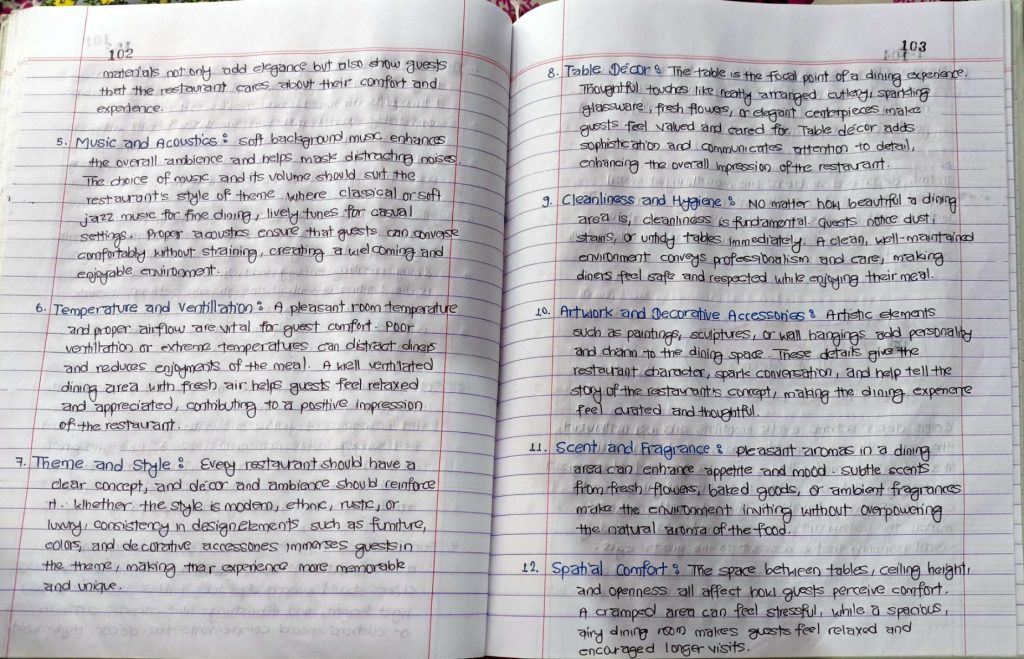 102
materials not only add elegance but also show guests
that the restaurant cares about their comfort and
experience.
5. Music and Acoustics : Soft background music enhances
the overall ambience and helps mask distracting noises.
The choice of music and its volume should suit the
restaurant's style of theme where classical or soft
jazz music for fine dining, lively tunes for casual
settings. Proper acoustics ensure that guests can converse
comfortably without straining, creating a welcoming and
enjoyable environment.
6. Temperature and Ventillation : A pleasant room temperature
and proper airflow are vital for guest comfort. Poor
ventiltation or extreme temperatures can distract diners
and reduces enjoyments of the meal. A well ventilated
dining area with fresh air helps guests feel relaxed
and appreciated, contributing to a positive impression
of the restaurant.
7. Theme and Style : Every restaurant should have a
clear concept, and decor and ambience should reinforce
it. Whether the style is modern, ethnic, rustic, or
luxury, consistency in design elements such as furniture,
colors, and decorative accessories immerses guests in
the theme, making their experience more memorable
and unique.
103
8. Table Décor : The table is the focal point of a dining experience.
Thoughtful touches like neatly arranged cutlery, sparkling
glassware, fresh flowers, or elegant centerpieces make
guests feel valued and cared for. Table décor adds
sophistication and communicates attention to detail,
enhancing the overall impression of the restaurant.
9. Cleanliness and Hygiene : No matter how beautiful a dining
area is, cleanliness is fundamental. Guests notice dust,
stains, or untidy tables immediately. A clean, well-maintained
environment conveys professionalism and care, making
diners feel safe and respected while enjoying their meal.
10. Artwork and Decorative Accessories : Artistic elements
such as paintings, sculptures, or wall hangings add personality
and charm to the dining space. These details give the
restaurant character, spark conversation, and help tell the
story of the restaurant's concept, making the dining experience
feel curated and thoughtful.
11. Scent and Fragrance : Pleasant aromas in a dining
area can enhance appetite and mood. Subtle scents
from fresh flowers, baked goods, or ambient fragrances
make the environment inviting without overpowering
the natural aroma of the food.
12. Spatial Comfort : The space between tables, ceiling height,
and openness all affect how guests perceive comfort.
A cramped area can feel stressful, while a spacious,
airy dining room makes guests feel relaxed and
encouraged longer visits.